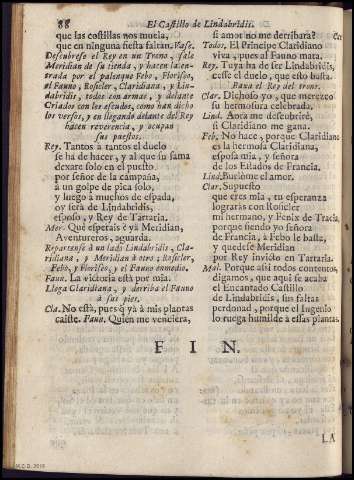 88
El Castillo de Lindabridis.
que las costillas nos muela,
que en ninguna fiesta faltan. Vase.
Descubrese el Rey en un Trono, sale
Meridian de su tienda, y hacen la en-
trada por el palenque Febo, Floriseo,
el Fauno, Rosicler, Claridiana, y Lin-
dabridis, todos con armas, y delante
Criados con los escudos, como han dicho
los versos, y en llegando delante del Rey
hacen reverencia, y ocupan
sus puestos.
Rey. Tantos à tantos el duelo
se ha de hacer, y al que su fama
dexare solo en el puesto
por señor de la campaña,
à un golpe de pica solo,
y luego à muchos de espada,
oy serà de Lindabridis,
esposo, y Rey de Tartaria.
Mer. Què esperais? ea Meridian,
Aventureros, aguarda.
Repartense à un lado Lindabridis, Cla-
ridiana, y Meridian à otro; Rosicler,
Febo, y Floriseo, y el Fauno enmedio.
Faun. La victoria està por mia.
Llega Claridiana, y derriba el Fauno
à sus pies.
Cla. No està, pues q̃ yà à mis plantas
caiste. Faun. Quien me venciera,
si amor no me derribara?
Todos. El Principe Claridiano
viva, pues al Fauno mata.
Rey. Tuya ha de ser Lindabridis,
cesse el duelo, que esto basta.
Baxa el Rey del trono.
Clar. Dichoso yo, que merezco
su hermosura celebrada.
Lind. Aora me descubrirè,
si Claridiano me gana.
Feb. No hace, porque Claridiano
es la hermosa Claridiana,
esposa mia, y señora
de los Estados de Francia.
Lind. Burlòme el amor.
Clar. Supuesto
que eres mia, tu esperanza
lograràs con Rosicler
mi hermano, y Fenix de Tracia,
porque siendo yo señora
de Francia, à Febo le basta,
y quedese Meridian
por Rey invicto en Tartaria.
Mal. Porque assi todos contentos,
digamos, que aqui se acaba
el Encantado Castillo
de Lindabridis, sus faltas
perdonad, porque el Ingenio
lo ruega humilde à essas plantas.
FIN.
LA